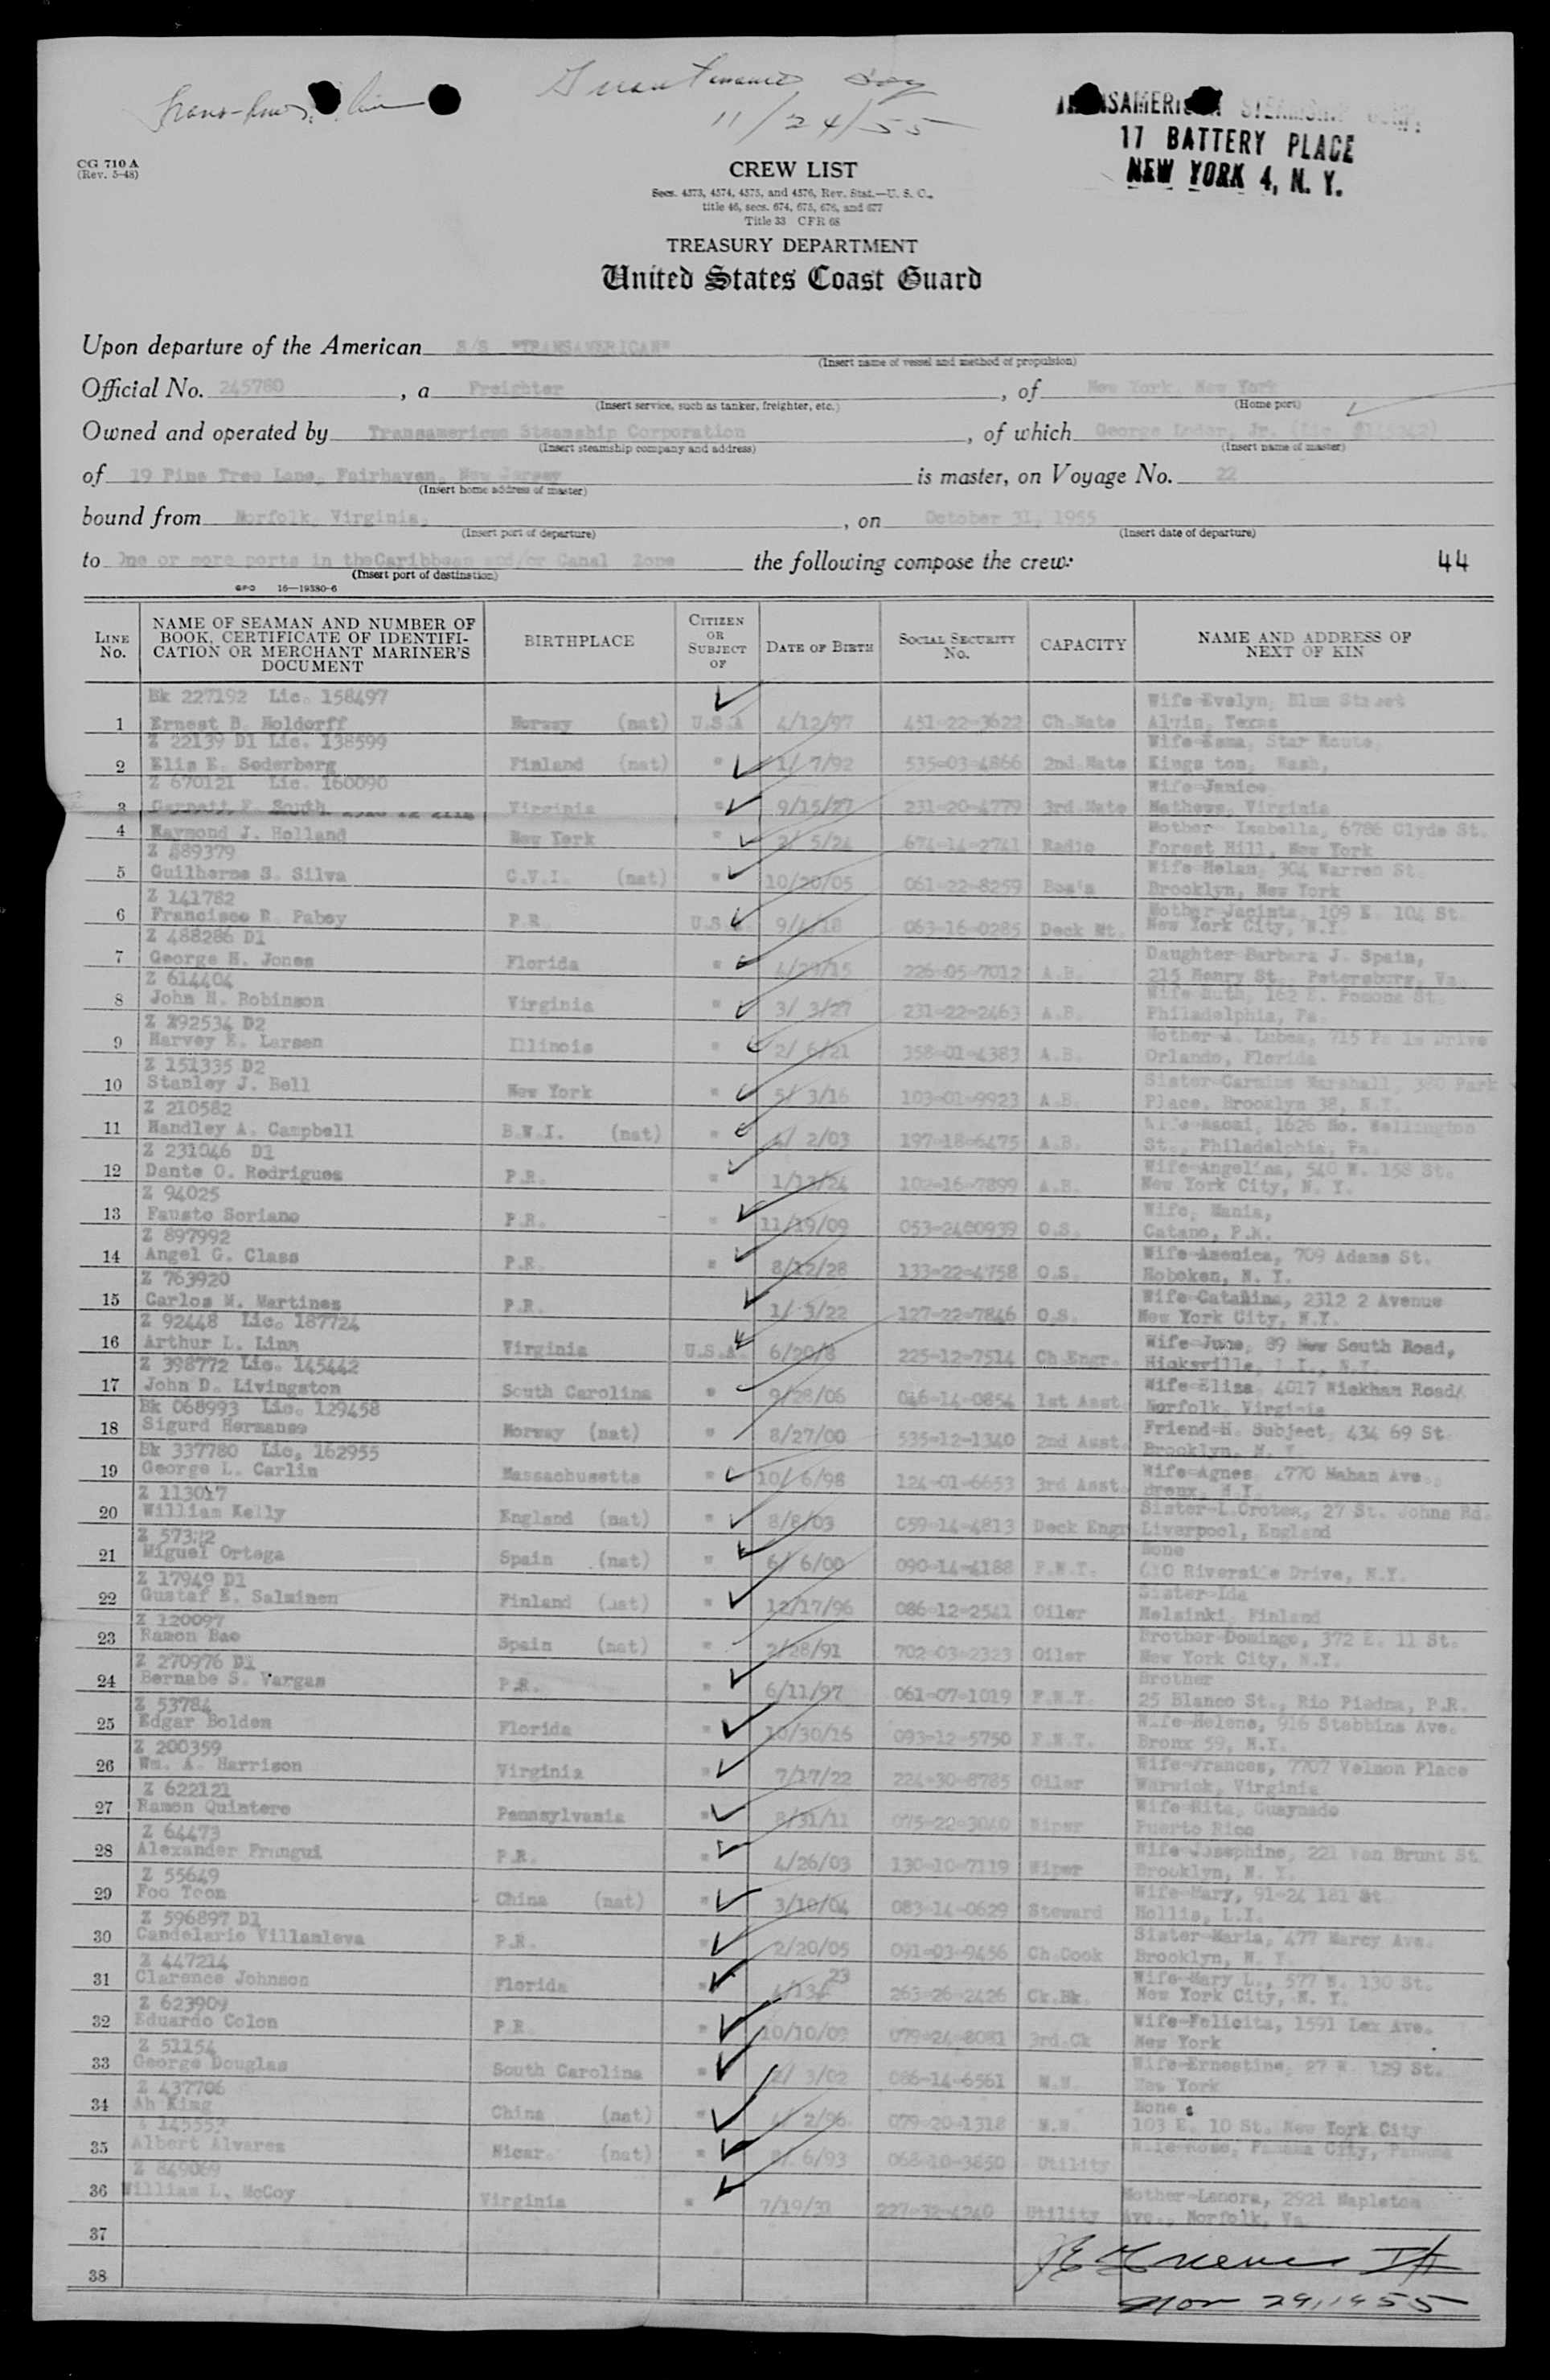 11/24/55
STEAMSHIP
17 BATTERY PLACE
NEW YORK 4, N. Y.
CG 710 A
(Rev. 5-48)
CREW LIST
Secs. 4573, 4574, 4575, and 4576, Rev. Stat.—U. S. C.,
title 46, secs. 674, 675, 676, and 677
Title 33 CFR 68
TREASURY DEPARTMENT
United States Coast Guard
Upon departure of the American S/S "TRANSAMERICAN"
(Insert name of vessel and method of propulsion)
Official No. 245780, a Freighter, of New York, New York
(Insert service, such as tanker, freighter, etc.) (Home port)
Owned and operated by Transamerican Steamship Corporation, of which George Loder, Jr. (Lic.
(Insert steamship company and address) (Insert name of master)
of 19 Pine Tree Lane, Fairhaven, New Jersey is master, on Voyage No. 22
(Insert home address of master)
bound from Norfolk, Virginia, , on October 31, 1955
(Insert port of departure) (Insert date of departure)
to One or more ports in theCaribbean and/or Canal Zone the following compose the crew: 44
(Insert port of destination)
GPO 16—19380-6
LINE No. NAME OF SEAMAN AND NUMBER OF BOOK, CERTIFICATE OF IDENTIFICATION OR MERCHANT MARINER'S DOCUMENT BIRTHPLACE CITIZEN OR SUBJECT OF DATE OF BIRTH SOCIAL SECURITY No. CAPACITY NAME AND ADDRESS OF NEXT OF KIN
Bk 227192 Lic. 158497 Wife-Evelyn, Blum Street
1 Ernest B. Holdorff Norway (nat) U.S.A 4/12/97 451-22-3622 Ch.Mate Alvin, Texas
Z 22139 D1 Lic. 138599 Star Route,
2 Elis E. Soderberg Finland (nat) " 1/ 7/92 535-03-4866 2nd.Mate Kings ton, Wash,
Z 670121 Lic. 160090 Wife-Janice
3 Garnett F. South Virginia " 9/15/27 231-20-4779 3rd.Mate Mathews, Virginia
Mother- Isabella, 6786 Clyde St.
4 Raymond J. Holland New York " 2/ 5/24 674-14-2741 Radio Forest Hill, New York
Z 589379 Wife-Helen, 304 Warren St.
5 Guilherme S. Silva C.V.I. (nat) " 10/20/05 061-22-8259 Bos'n Brooklyn, New York
Z 141782 Mother-Jacinta, 109 E. 104 St.
6 Francisco R. Paboy P.R. U.S.A. 9/4/18 063-16-0285 Deck Mt. New York City, N.Y.
Z 488286 D1 Daughter-Barbara J. Spain,
7 George H. Jones Florida " 4/29/15 226-05-7012 A.B. 215 Henry St., Petersburg, Va.
Z 614404 Wife-Ruth, 162 E. Pomona St.
8 John H. Robinson Virginia " 3/ 3/27 231-22-2463 A.B. Philadelphia, Pa.
Z 292534 D2 Mother-A. Lubes, 715 Drive
9 Harvey E. Larsen Illinois " 2/ 6/21 358-01-4383 A.B. Orlando, Florida
Z 151335 D2 Sister-Carmine Marshall, 380 Park
10 Stanley J. Bell New York " 5/ 3/16 103-01-9923 A.B. Place, Brooklyn 38, N.Y.
Z 210582 Wife-Naomi, 1626 No. Wellington
11 Handley A. Campbell B.W.I. (nat) " 4/ 2/03 197-18-6475 A.B. St., Philadelphia, Pa.
Z 231046 D1 Wife-Angelina, 540 W. 158 St.
12 Dante O. Rodrigues P.R. " 1/13/24 102-16-7899 A.B. New York City, N. Y.
Z 94025 Wife, Mania,
13 Fausto Soriano P.R. " 11/19/09 053-2400939 O.S. Catano, P.R.
Z 897992 Wife-Amenica, 709 Adams St.
14 Angel G. Class P.R. " 8/12/28 133-22-4758 O.S. Hoboken, N. Y.
Z 763920 Wife-Catalina, 2312 2 Avenue
15 Carlos M. Martines P.R. 1/ 3/22 127-22-7846 O.S. New York City, N.Y.
Z 92448 Lic. 187724 Wife-June, 89 New South Road,
16 Arthur L. Linn Virginia U.S.A. 6/20/8 225-12-7514 Ch.Engr. Hicksville, L.I., N.Y.
Z 398772 Lic. 145442 Wife-Eliza, 4017 Wickham Road/
17 John D. Livingston South Carolina " 9/28/06 046-14-0854 1st Asst. Norfolk, Virginia
Bk 068993 Lic. 129458 Friend-H. Subject, 434 69 St.
18 Sigurd Hermanso Norway (nat) " 8/27/00 535-12-1340 2nd Asst. Brooklyn, N. Y.
Bk 337780 Lic, 162955 Wife-Agnes, 2770 Mahan Ave.,
19 George L. Carlin Massachusetts " 10/ 6/98 124-01-6653 3rd Asst. Bronx, N.Y.
Z 113017 Sister-L.Crotex, 27 St. Johns Rd.
20 William Kelly England (nat) " 8/8/03 059-14-4813 Deck Engr Liverpool, England
Z 573 None
21 Miguel Ortega Spain (nat) " 6/ 6/00 090-14-4188 F.W.T. 610 Riverside Drive, N.Y.
Z 17949 D1 Sister-Ida
22 Gustaf E. Salminen Finland (nat) " 12/17/96 086-12-2541 Oiler Helsinki, Finland
Z 120097 Brother-Domingo, 372 E. 11 St.
23 Ramon Bao Spain (nat) " 2/28/91 702-03-2323 Oiler New York City, N.Y.
Z 270976 D1 Brother
24 Bernabe S. Vargas P.R. " 6/11/97 061-07-1019 F.W.T. 25 Blanco St., Rio Piedna, P.R.
Z 53784 Wife-Helene, 916 Stebbins Ave.
25 Edgar Bolden Florida " 10/30/16 093-12-5750 F.W.T. Bronx 59, N.Y.
Z 200359 Wife-Frances, 7707 Velmon Place
26 Wm. A. Harrison Virginia " 7/17/22 224-30-8785 Oiler Warwick, Virginia
Z 622121 Wife-Rita, Guaynado
27 Ramon Quintero Pennsylvania " 8/31/11 075-22-3040 Wiper Puerto Rico
Z 64473 Wife-Josephine, 221 Van Brunt St.
28 Alexander Frangui P.R. " 4/26/03 130-10-7119 Wiper Brooklyn, N. Y.
Z 55649 Wife-Mary, 91-24 181 St
29 Foo Toon China (nat) " 3/10/04 083-14-0629 Steward Hollis, L.I.
Z 596897 D1 Sister-Maria, 477 Marcy Ave.
30 Candelario Villamleva P.R. " 2/20/05 091-03-9456 Ch.Cook Brooklyn, N. Y.
Z 447214 Wife-Mary L., 577 W. 130 St.
31 Clarence Johnson Florida " 4/13/ 23 263-26-2426 Ck.Bk. New York City, N. Y.
Z 623909 Wife-Felicita, 1591 Lex Ave.
32 Eduardo Colon P.R. " 10/10/09 079-24-8081 3rd.Ck New York
Z 51154 Wife-Ernestine, 27 W. 129 St.
33 George Douglas South Carolina " 2/ 3/02 086-14-6561 M.M. New York
Z 437706 None
34 Ah King China (nat) " 2/96 079-20-1318 M.M. 103 E. 10 St. New York City
Z 145553 Wife-Rose, Panama City, Panama
35 Albert Alvares Nicar. (nat) " 6/93 068-10-3850 Utility
Z 849069 Mother-Lenora, 2921 Mapleton
36 William L. McCoy Virginia " 7/19/31 227-32-4240 Utility Ave., Norfolk, Va.
37
38
Nov 29, 1955